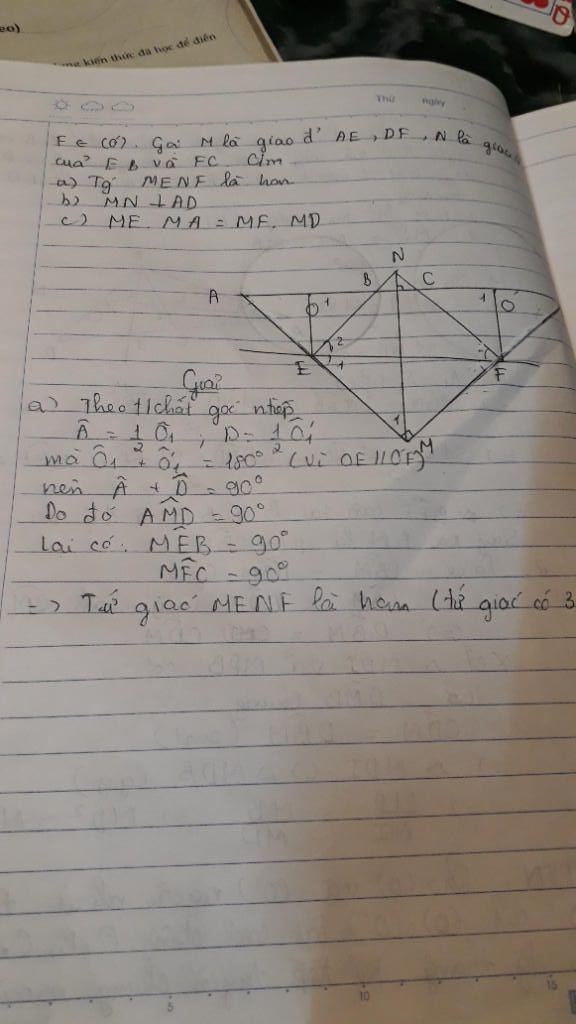 ng kiến thức đã học để điền
Thứ ngày
F ∈ (O'). Gọi M là giao đ' AE, DF, N là giao
của EB và FC. C/m
a) Tg MENF là hcn
b) MN ⊥ AD
c) ME. MA = MF. MD
N
A B 1 C 1 O'
O
2
E 1 F
1
M
Giải
a) Theo t/chất góc ntiếp
Â = 1/2 Ô1 ; D̂ = 1/2 Ô'1
mà Ô1 + Ô'1 = 180° (vì OE // O'F)
nên Â + D̂ = 90°
Do đó AMD = 90°
Lại có: MEB = 90°
MFC = 90°
=> Tứ giác MENF là hcn (tứ giác có 3
5 10 15